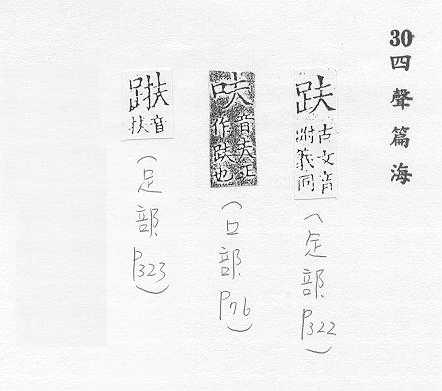 30 四聲篇海
趺
古文音
跗義同
(足部 P322)
呋
音夫正
作趺也
(口部 P76)
音
扶
(足部 P323)